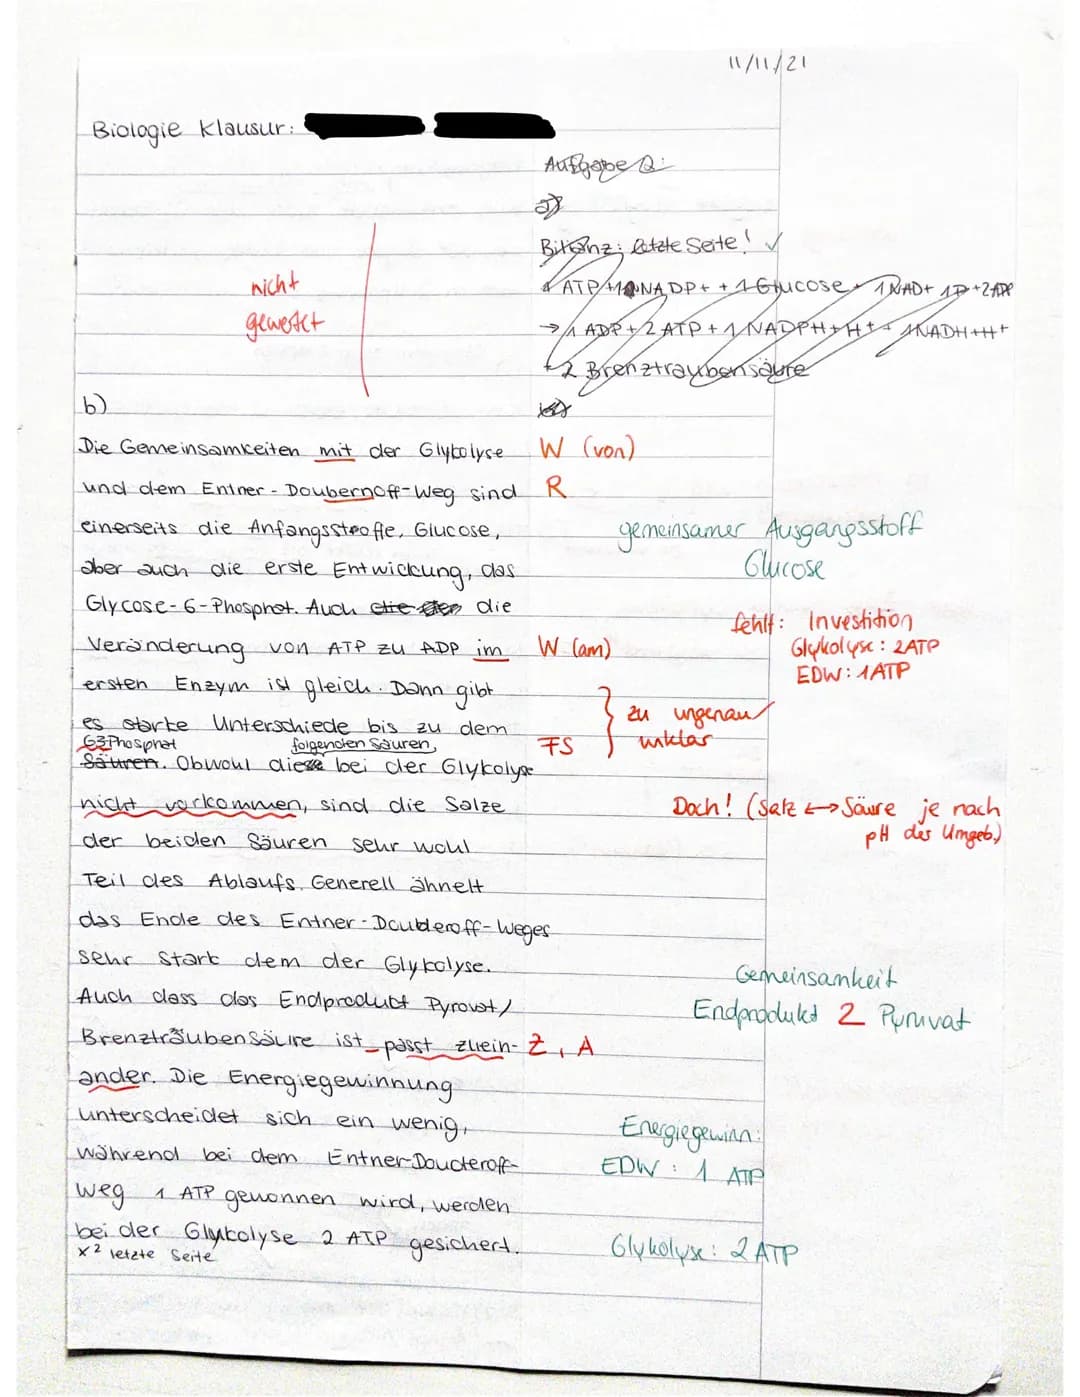 11/11/21
Biologie Klausur:
Aufgabe 2:
a)
Bilanz: letzte Seite! ✓
nicht
gewertet
1 ATP + 1 NADP+ + 1 Glucose + 1 NAD+ 1P + 2 ADP
→ 1 ADP + 2 ATP + 1 NADPH + H+ + 1NADH + H+
+ 2 Brenztraubensäure
b)
Die Gemeinsamkeiten mit der Glykolyse W (von)
und dem Entner-Doubernoff-Weg sind R
einerseits die Anfangsstoffe, Glucose, gemeinsamer Ausgangsstoff
Glucose
aber auch die erste Entwicklung, das
Glycose-6-Phosphat. Auch die
fehlt: Investition
Veränderung von ATP zu ADP im W (am) Glykolyse: 2ATP
EDW: 1ATP
ersten Enzym ist gleich. Dann gibt
es starke Unterschiede bis zu dem zu ungenau
G3Phosphat folgenden Säuren, FS unklar
Säuren. Obwohl diese bei der Glykolyse
nicht vorkommen, sind die Salze Doch! (Salz ↔ Säure je nach
pH der Umgeb.)
der beiden Säuren sehr wohl
Teil des Ablaufs. Generell ähnelt
das Ende des Entner-Douderoff-Weges
sehr stark dem der Glykolyse. Gemeinsamkeit
Auch dass das Endprodukt Pyrovat/ Endprodukt 2 Pyruvat
Brenzträubensäure ist passt zuein- Z, A
ander. Die Energiegewinnung
unterscheidet sich ein wenig, Energiegewinn:
während bei dem Entner-Doucteroff- EDW: 1 ATP
weg 1 ATP gewonnen wird, werden
bei der Glykolyse 2 ATP gesichert. Glykolyse: 2 ATP
x² letzte Seite